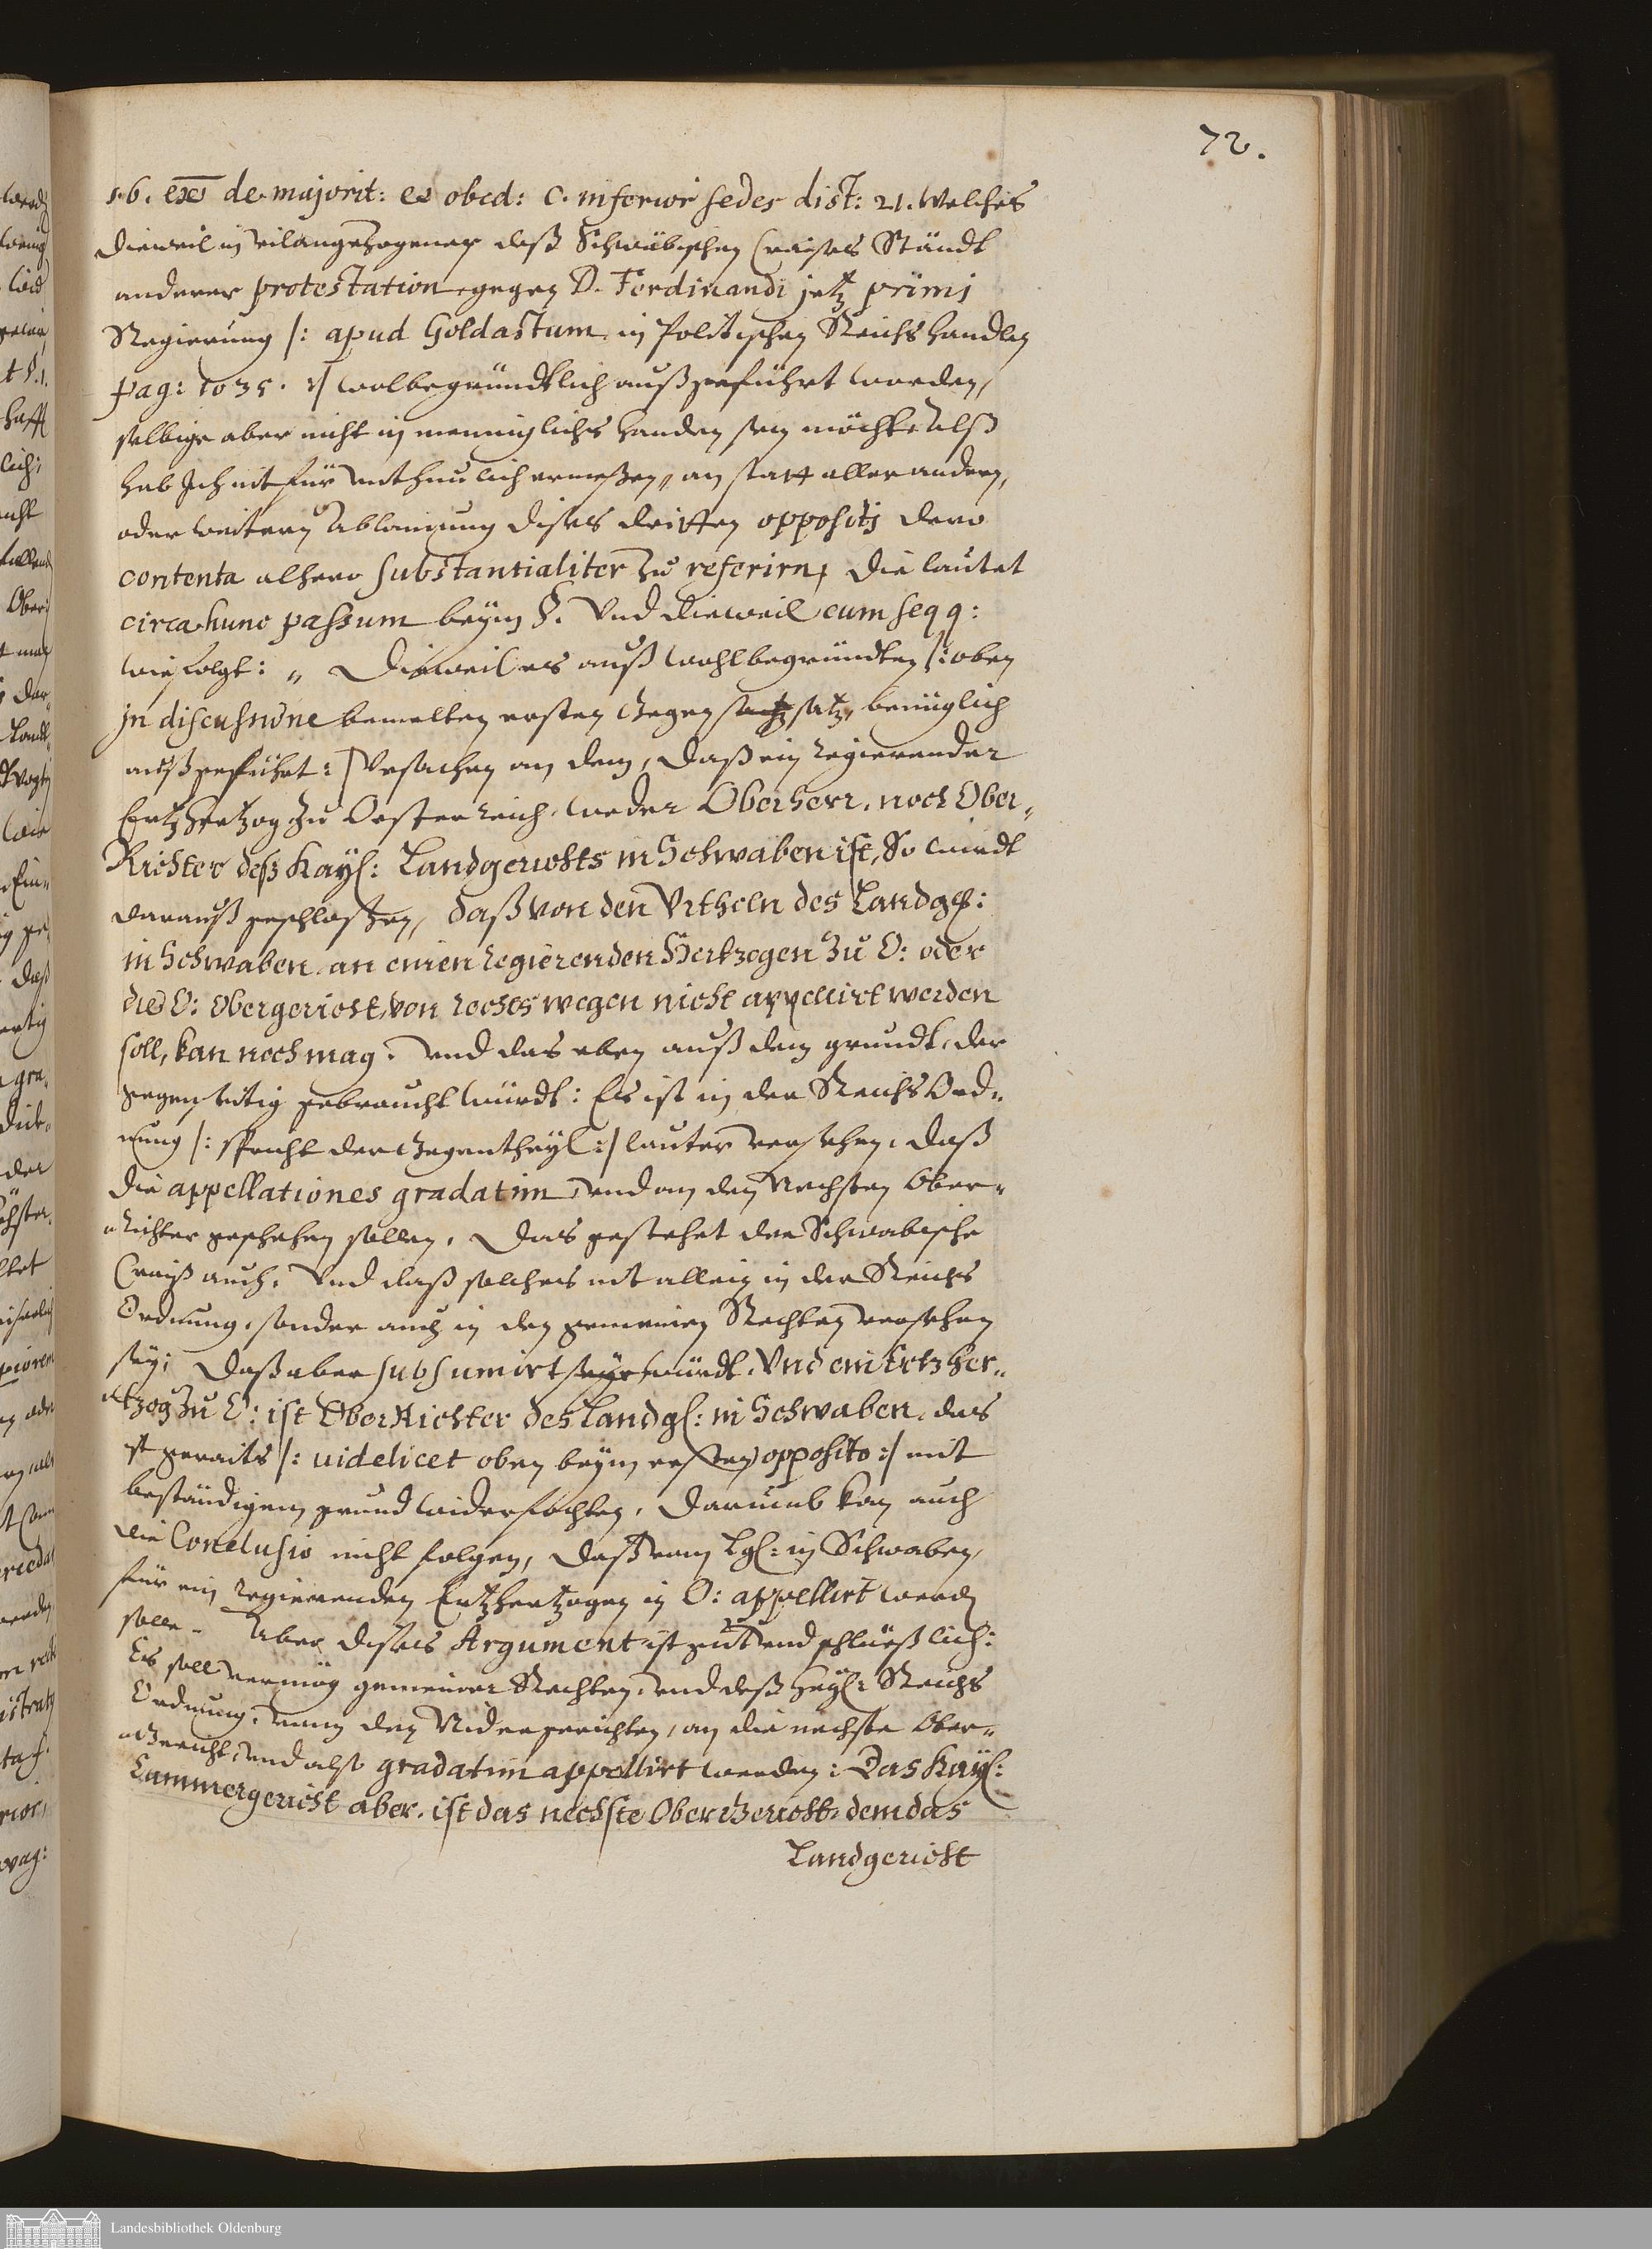 72.
16. ext de majorit: et obed: c. inferior sedes dist: 21. Welches
dieweil in vilangezogener deß Schwäbischen Craises Ständt
anderer protestation gegen D. Ferdinandi jetz primi
Regierung /: apud Goldastum in Politischen Reichs Handlen
pag: 1035. :/ wolbegründtlich außgeführt worden,
selbige aber nicht in menniglichs handen sein möchte, Alß
hab Ich nit für unthunlich ermeßen, an statt aller andern,
oder weitern Ablainung dises dritten oppositj dero
contenta alhero substantialiter zu referirn, die lautet
circa hunc passum beym §. Und dieweil cum seqq:
wie folgt: „ Dieweil es auß wohlbegründten /: oben
in discussione bemelten ersten Gegensatz, benüglich
außgeführt: / Ursachen an dem, daß ein regierender
Ertzhertzog zu Oesterreich, weder Oberherr, noch Ober-
Richter deß Kayl: Landgerichts in Schwaben ist, So würdt
darauß geschloßen, daß von den Urtheln des Landgl:
in Schwaben an einen regierenden Hertzogen zu O: oder
die O: Obergericht, von rechts wegen nicht appellirt werden
soll, kan noch mag. Und das eben auß dem grundt, der
gegentheilig gebraucht würdt: Es ist in der Reichs Ord-
nung /: spricht der Gegentheyl :/ lauter versehen, daß
die appellationes gradatim und an den Nechsten Ober-
Richter geschehen sollen. Das gestehet der Schwabische
Craiß auch, Und daß solches nit allein in der Reichs
Ordnung, sonder auch in den gemeinen Rechten versehen
sey; Daß aber subsumirt würdt, Und ein Ertzher-
tzog zu O: ist OberRichter des Landgl: in Schwaben, das
ist geraits /: uidelicet oben beym ersten opposito :/ mit
beständigem grund widerfochten, Darumb kan auch
die Conclusio nicht folgen, daß vom Lgl: in Schwaben,
für ein regierenden Ertzhertzogen in O: appellirt werden
solle. Aber dises Argument ist gut und schlüeßlich:
Es soll vermög gemeiner Rechten, und deß Heyl: Reichs
Ordnung, vom den Nidergerichten, an die nechste Ober-
Gericht, und also gradatim appellirt werden: Das Kayl:
Cammergericht aber, ist das nechste OberGericht, dem das
Landgericht
Landesbibliothek Oldenburg